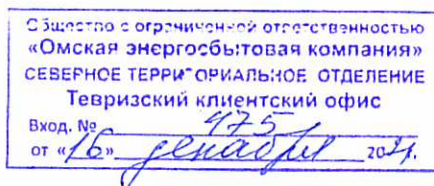 Общество с ограниченной ответственностью
«Омская энергосбытовая компания»
СЕВЕРНОЕ ТЕРРИТОРИАЛЬНОЕ ОТДЕЛЕНИЕ
Тевризский клиентский офис
Вход. № 475
от «16» декабря 2021.